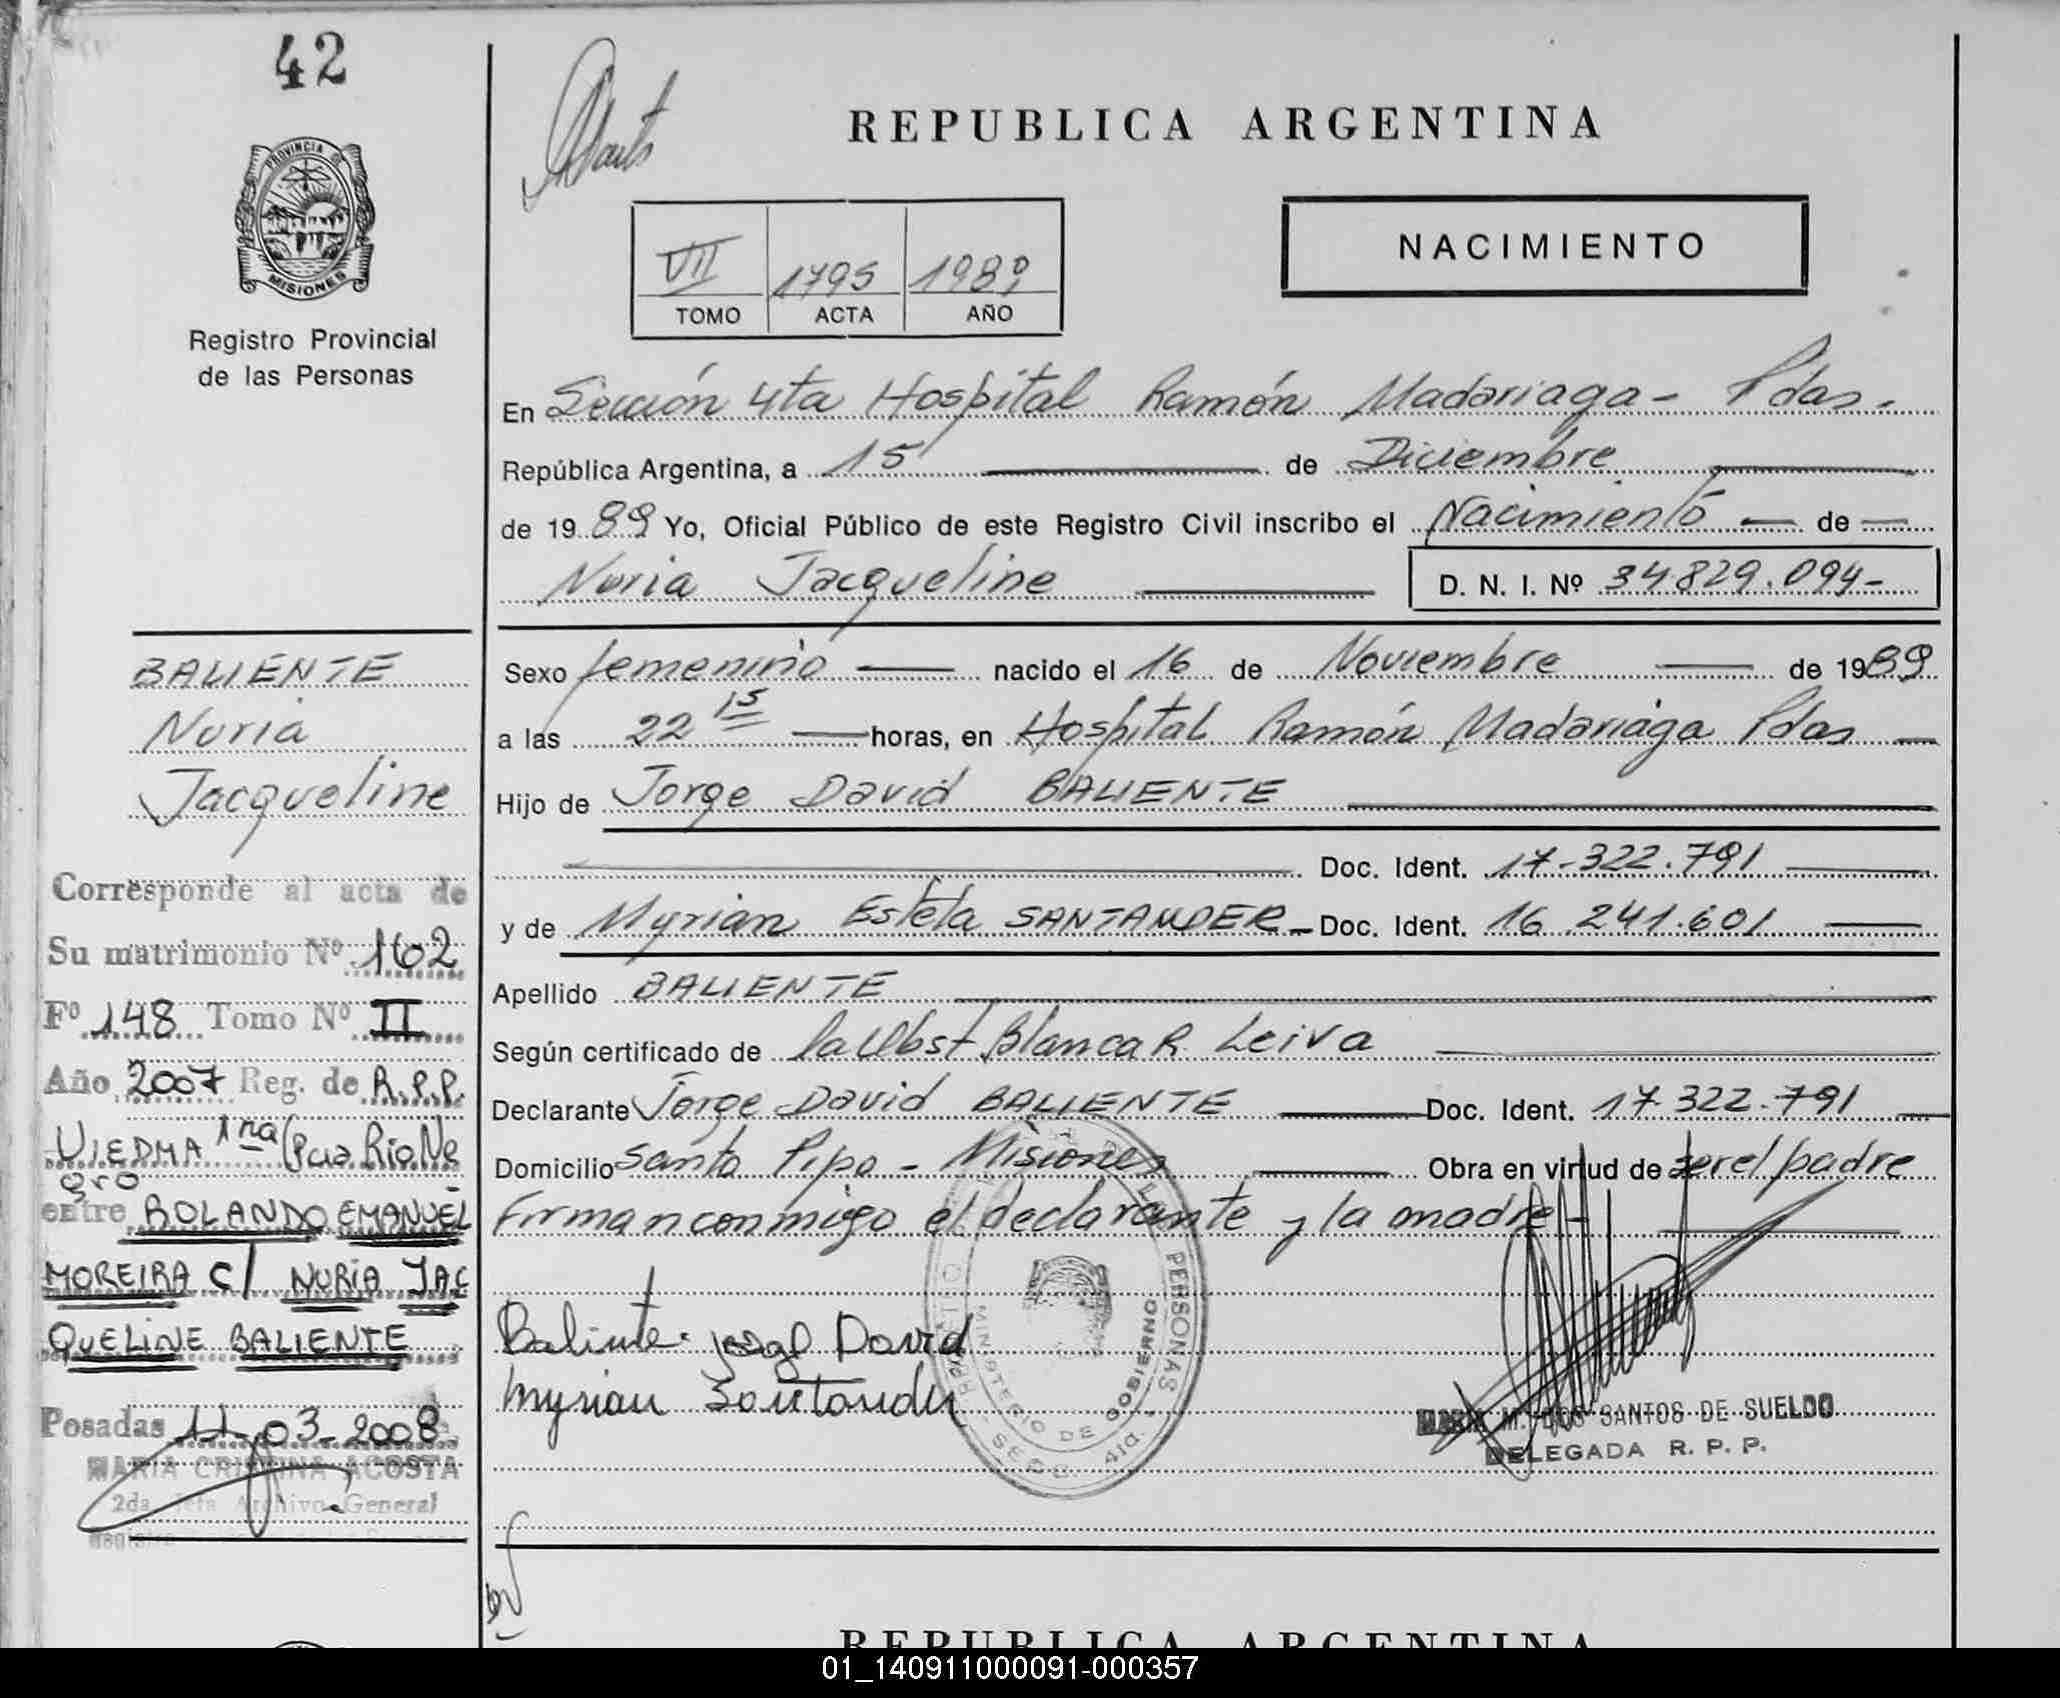 42
REPUBLICA ARGENTINA
PROVINCIA DE
MISIONES
Registro Provincial
de las Personas
VII 1795 1989
TOMO ACTA AÑO
NACIMIENTO
En Sección 4ta Hospital Ramón Madariaga - Pdas.
República Argentina, a 15 de Diciembre
de 1989 Yo, Oficial Público de este Registro Civil inscribo el Nacimiento de
Nuria Jacqueline D. N. I. Nº 34.829.094-
BALIENTE
Nuria
Jacqueline
Sexo femenino nacido el 16 de Noviembre de 1989
a las 22 15 horas, en Hospital Ramón Madariaga Pdas
Hijo de Jorge David BALIENTE
Doc. Ident. 17.322.791
y de Myrian Estela SANTANDER - Doc. Ident. 16.241.601
Apellido BALIENTE
Según certificado de la Obst Blanca R. Leiva
Declarante Jorge David BALIENTE Doc. Ident. 17.322.791
Domicilio Santo Pipo - Misiones Obra en virtud de ser el padre
Firman conmigo el declarante y la madre -
Corresponde al acta de
Su matrimonio Nº 162
Fº 148 Tomo Nº II
Año 2007 Reg. de R.P.P.
VIEDMA 1ra (Pcia Rio Ne
gro
entre ROLANDO EMANUEL
MOREIRA C/ NURIA JAC
QUELINE BALIENTE
Posadas 11-03-2008
MARIA CRISTINA ACOSTA
2da Jefa Archivo General
Registro
Baliente Jorge David
Myrian Santander
PERSONAS
MINISTERIO DE GOBIERNO
SECC. 4ta.
MARIA M. DOS SANTOS DE SUELDO
DELEGADA R. P. P.
REPUBLICA ARGENTINA
01_140911000091-000357